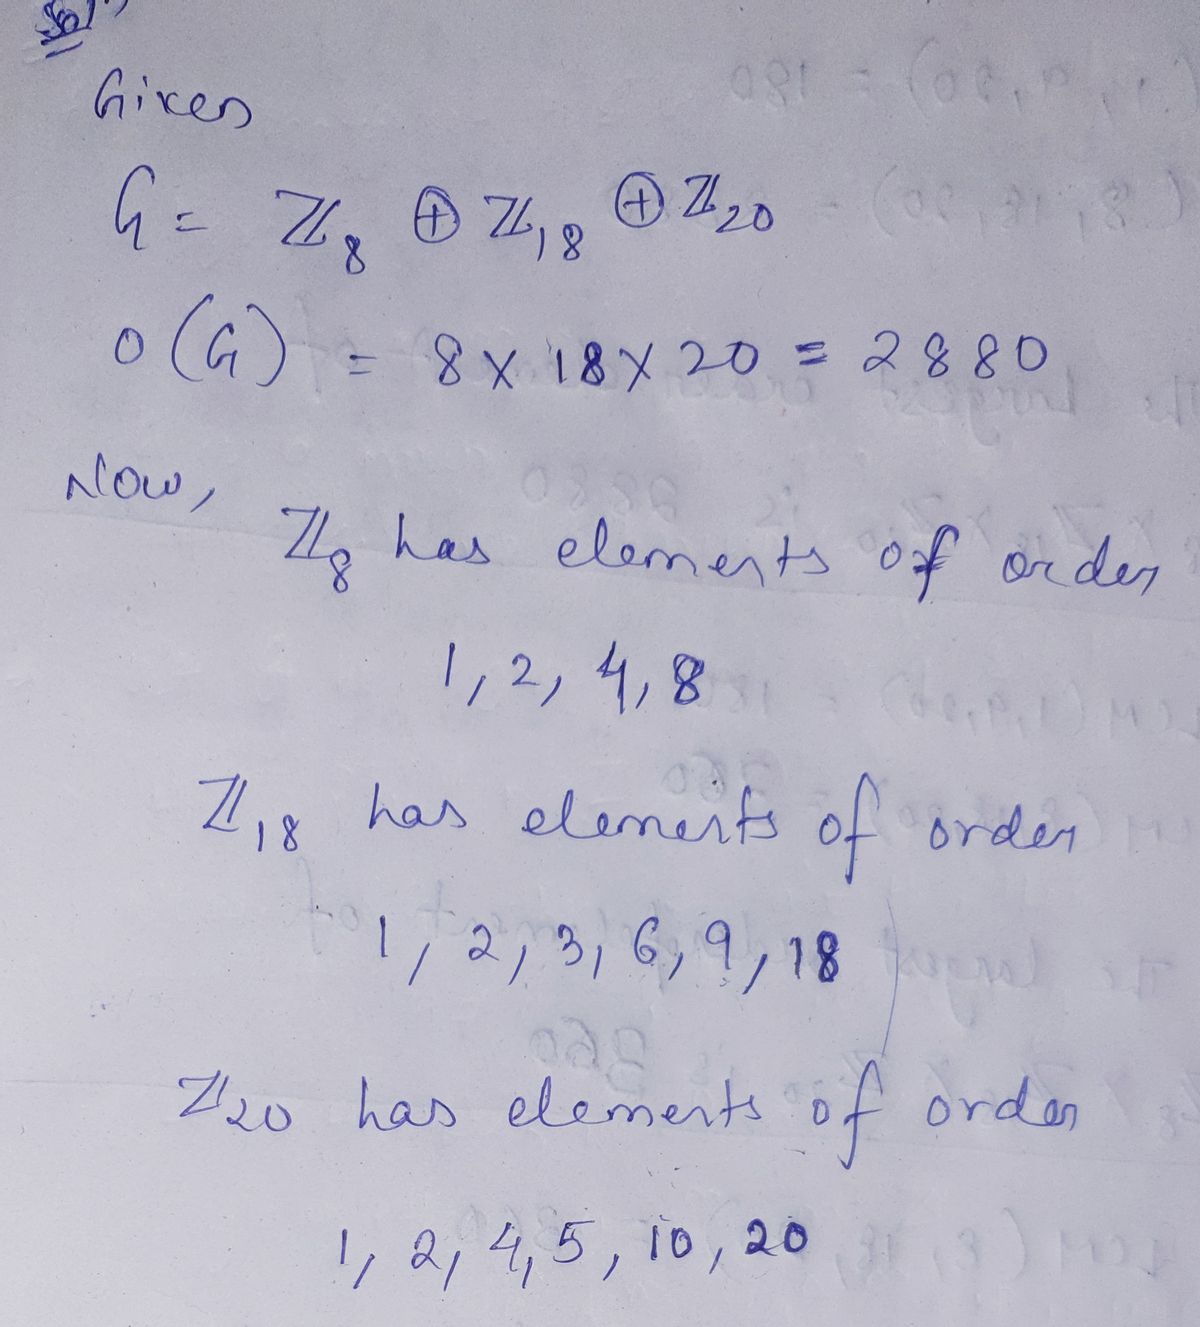 Given
G = ℤ8 ⊕ ℤ18 ⊕ ℤ20
o(G) = 8 X 18 X 20 = 2880
Now,
ℤ8 has elements of order
1, 2, 4, 8
ℤ18 has elements of order
1, 2, 3, 6, 9, 18
ℤ20 has elements of order
1, 2, 4, 5, 10, 20